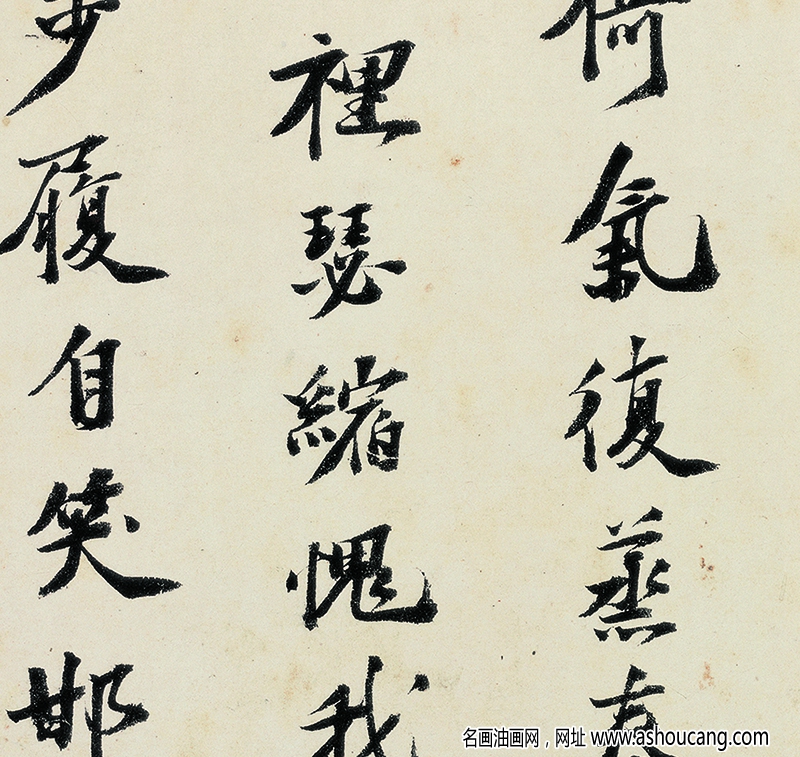 氣復蒸
裡瑟縮愧我
步履自笑邯
名画油画网，网址 www.ashoucang.com